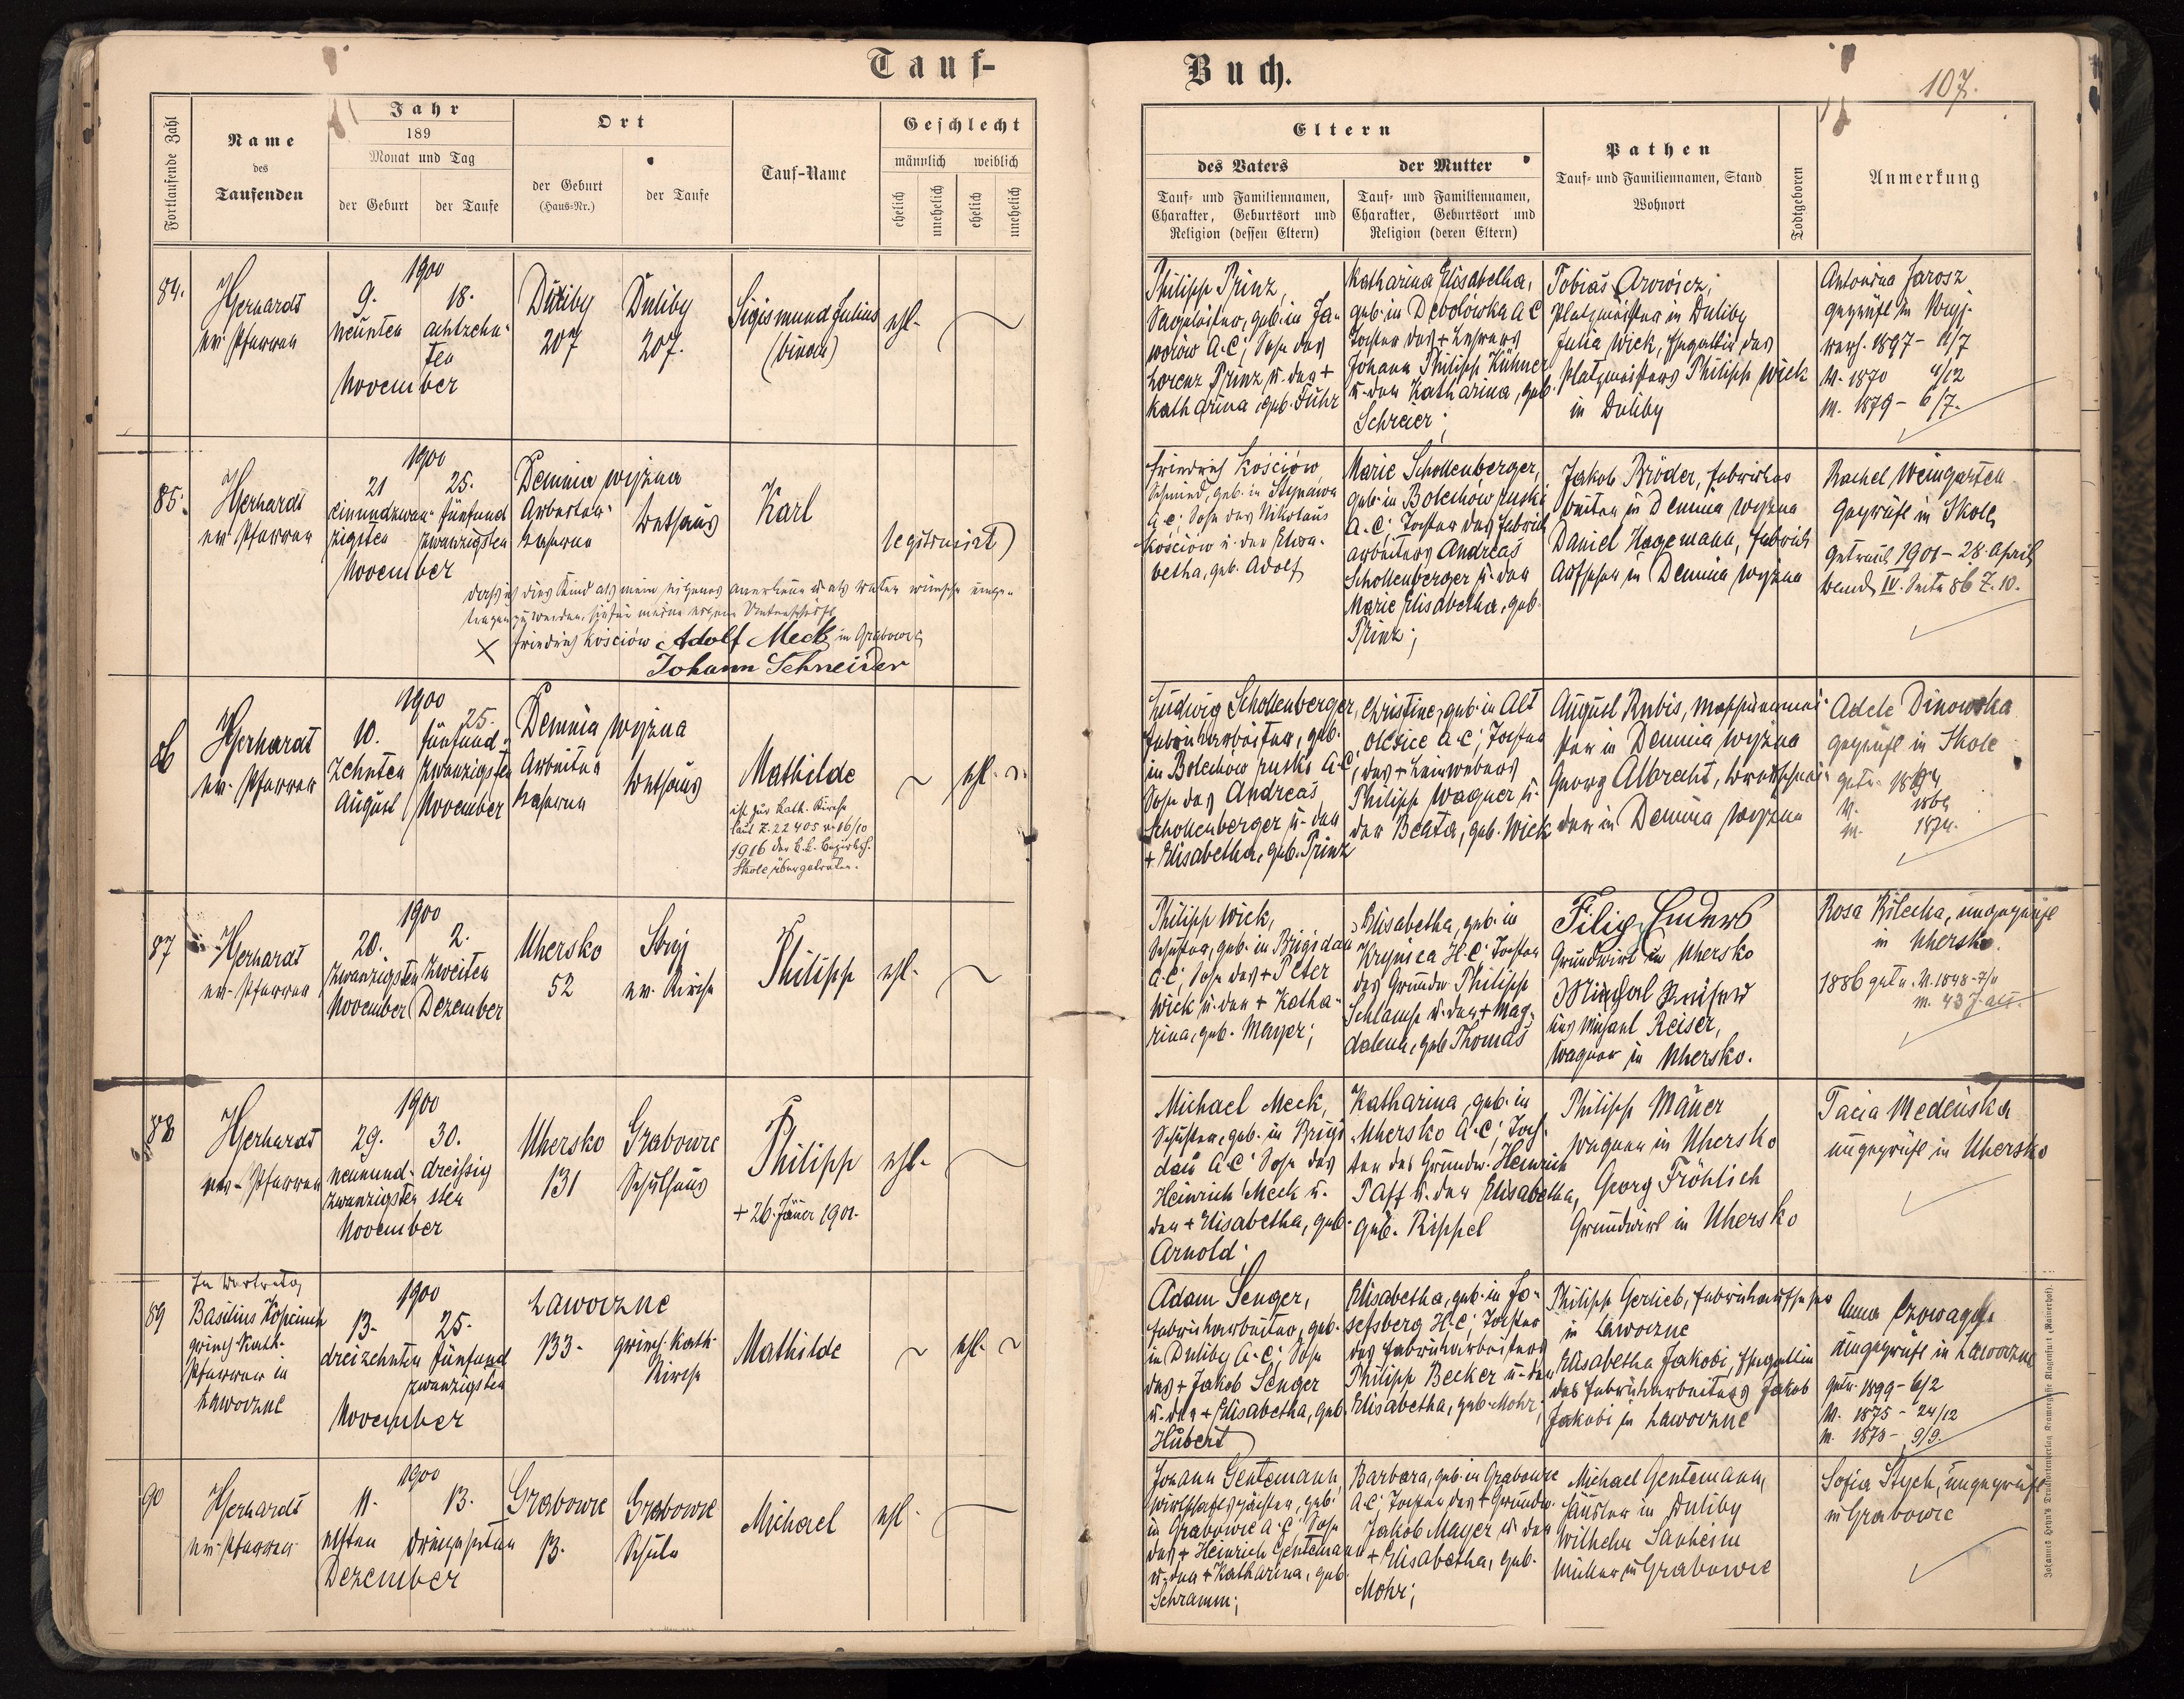 Tauf-
Buch.
107.
Fortlaufende Zahl
Name
des
Taufenden
Jahr
189
Monat und Tag
der Geburt
der Taufe
Ort
der Geburt
(Haus-Nr.)
der Taufe
Tauf-Name
Geschlecht
männlich
weiblich
ehelich
unehelich
ehelich
unehelich
Eltern
des Vaters
Tauf- und Familiennamen,
Charakter, Geburtsort und
Religion (dessen Eltern)
der Mutter
Tauf- und Familiennamen,
Charakter, Geburtsort und
Religion (deren Eltern)
Pathen
Tauf- und Familiennamen, Stand
Wohnort
Todtgeboren
Anmerkung
84.
Gerhardt
ev. Pfarrer
1900
9.
neunten
18.
achtzehn-
ten
November
Duliby
207
Duliby
207.
Sigismund Julius
ehl.
Philipp Prinz,
geb. in Ja-
worów A.C; Sohn des
Lorenz Prinz u. der +
Katharina, geb. Fuhr
Katharina Elisabetha,
geb. in Debolówka A C
Tochter des + Lehrers
Johann Philipp Kühner
u. der Katharina, geb.
Schreier;
Tobias Arowicz,
Platzmeister in Duliby
Julia Wick, Ehegattin des
Platzmeisters Philipp Wick
in Duliby
Antonina Jarosz
geprüft in
1897 - 11/7
V. 1870 4/12
M. 1879 - 6/7.
85.
Gerhardt
ev. Pfarrer
1900
21
einundzwan-
zigsten
25.
fünfund
zwanzigsten
November
Demnia wyżna
Arbeiter-
kaserne
Bethaus
Karl
legitimirt)
daß ich dies Kind als mein eigenes anerkenne u. als Vater wünsche einge-
tragen zu werden, meine eigene Unterschrift
X Friedrich Kościów Adolf Meck in Grabowce
Johann Schneider
Friedrich Kościów
Schmied, geb. in Stynawa
A.C; Sohn des Nikolaus
Kościów u. der Elisa-
betha, geb. Adolf
Marie Schollenberger,
geb. in Bolechów ruski
A.C; Tochter des Fabrik
arbeiters Andreas
Schollenberger u. der
Marie Elisabetha, geb.
Prinz;
Jakob Bröder, Fabriksar
beiter in Demnia wyżna
Daniel Hagemann, Fabriks
Aufseher in Demnia wyżna
Rachel Weingarten
geprüft in Skole
getraut 1901 - 28. April
Band IV. Seite 86 Z. 10.
86
Gerhardt
ev. Pfarrer
1900
10.
zehnten
August
25.
fünfund-
zwanzigsten
November
Demnia wyżna
Arbeiter
kaserne
Bethaus
Mathilde
ist zur kath. Kirche
laut Z. 22405 v. 16/10
1916 der k.k. Bezirksh.
Skole übergetreten.
ehl.
Ludwig Schollenberger,
Fabriksarbeiter, geb.
in Bolechow ruski A.C,
Sohn des Andreas
Schollenberger u. der
+ Elisabetha, geb. Prinz
Christine, geb. in Alt
Oleśice A.C; Tochter
des + Leinwebers
Philipp Wagner u.
der Beata, geb. Wick
August Rubis, Maschinenmei-
ster in Demnia wyżna
Georg Albrecht,
der in Demnia wyżna
Adele Dinowska
geprüft in Skole
getr. 1894
V.
M. 1874.
87
Gerhardt
ev. Pfarrer
1900
20.
zwanzigsten
November
2.
zweiten
Dezember
Uhersko
52
Stryj
ev. Kirche
Philipp
ehl.
Philipp Wick,
Schuster, geb. in Brigidau
A.C; Sohn des + Peter
Wick u. der + Katha-
rina, geb. Mayer;
Elisabetha, geb. in
Krynica H.C; Tochter
des Grundw. Philipp
Schlamp u. der + Mag-
dalena, geb. Thomas
Filip Enders
Grundwirt in Uhersko
Michael Reiser
Michael Reiser,
Wagner in Uhersko.
Rosa Bilecka, ungeprüft
in Uhersko.
1886 getr. V. 1848 - 7/11
M. 43 J. alt.
88
Gerhardt
ev. Pfarrer
1900
29.
neunund-
zwanzigsten
30.
dreissig
sten
November
Uhersko
131
Grabowce
Schulhaus
Philipp
+ 26. Jäner 1901.
ehl.
Michael Meck,
Schuster, geb. in Brigi
dau A.C; Sohn des
Heinrich Meck u.
der + Elisabetha, geb.
Arnold;
Katharina, geb. in
Uhersko A.C; Toch-
ter des Grundw. Heinrich
Paff u. der Elisabetha,
geb. Rippel
Philipp Mauer
Wagner in Uhersko
Georg Fröhlich
Grundwirt in Uhersko
Tacia Medeńska
ungeprüft in Uhersko
89
In Vertretg
Basilius Kopcinch
griech. Kath.
Pfarrer in
Lawoczne
1900
13.
dreizehnten
25.
fünfund
zwanzigsten
November
Lawoczne
133.
griech. kath.
Kirche
Mathilde
ehl.
Adam Senger,
Fabriksarbeiter, geb.
in Duliby A.C; Sohn
des + Jakob Senger
u. der + Elisabetha, geb.
Hubert
Elisabetha, geb. in Jo-
sefsberg H.C; Tochter
des Fabriksarbeiters
Philipp Becker u. der
Elisabetha, geb. Mohr;
Philipp Gerlieb, Fabriksaufseher
in Lawoczne
Elisabetha Jakobi, Ehegattin
des Fabriksarbeiters Jakob
Jakobi in Lawoczne
Anna
ungeprüft in Lawoczne
getr. 1899 - 6/2
V. 1875 - 24/12
M. 1873 - 9/9.
90
Gerhardt
ev. Pfarrer
1900
11.
elften
13.
dreizehnten
Dezember
Grabowce
13.
Grabowce
Schule
Michael
ehl.
Johann Gentemann,
geb.
in Grabowce A.C; Sohn
des + Heinrich Gentemann
u. der + Katharina, geb.
Schramm;
Barbara, geb. in Grabowce
A.C; Tochter des + Grundw.
Jakob Mayer u. der
+ Elisabetha, geb.
Mohr;
Michael Gentemann,
Häusler in Duliby
Wilhelm Sauheim
Müller in Grabowce
Sofia Stych, ungeprüft
in Grabowce